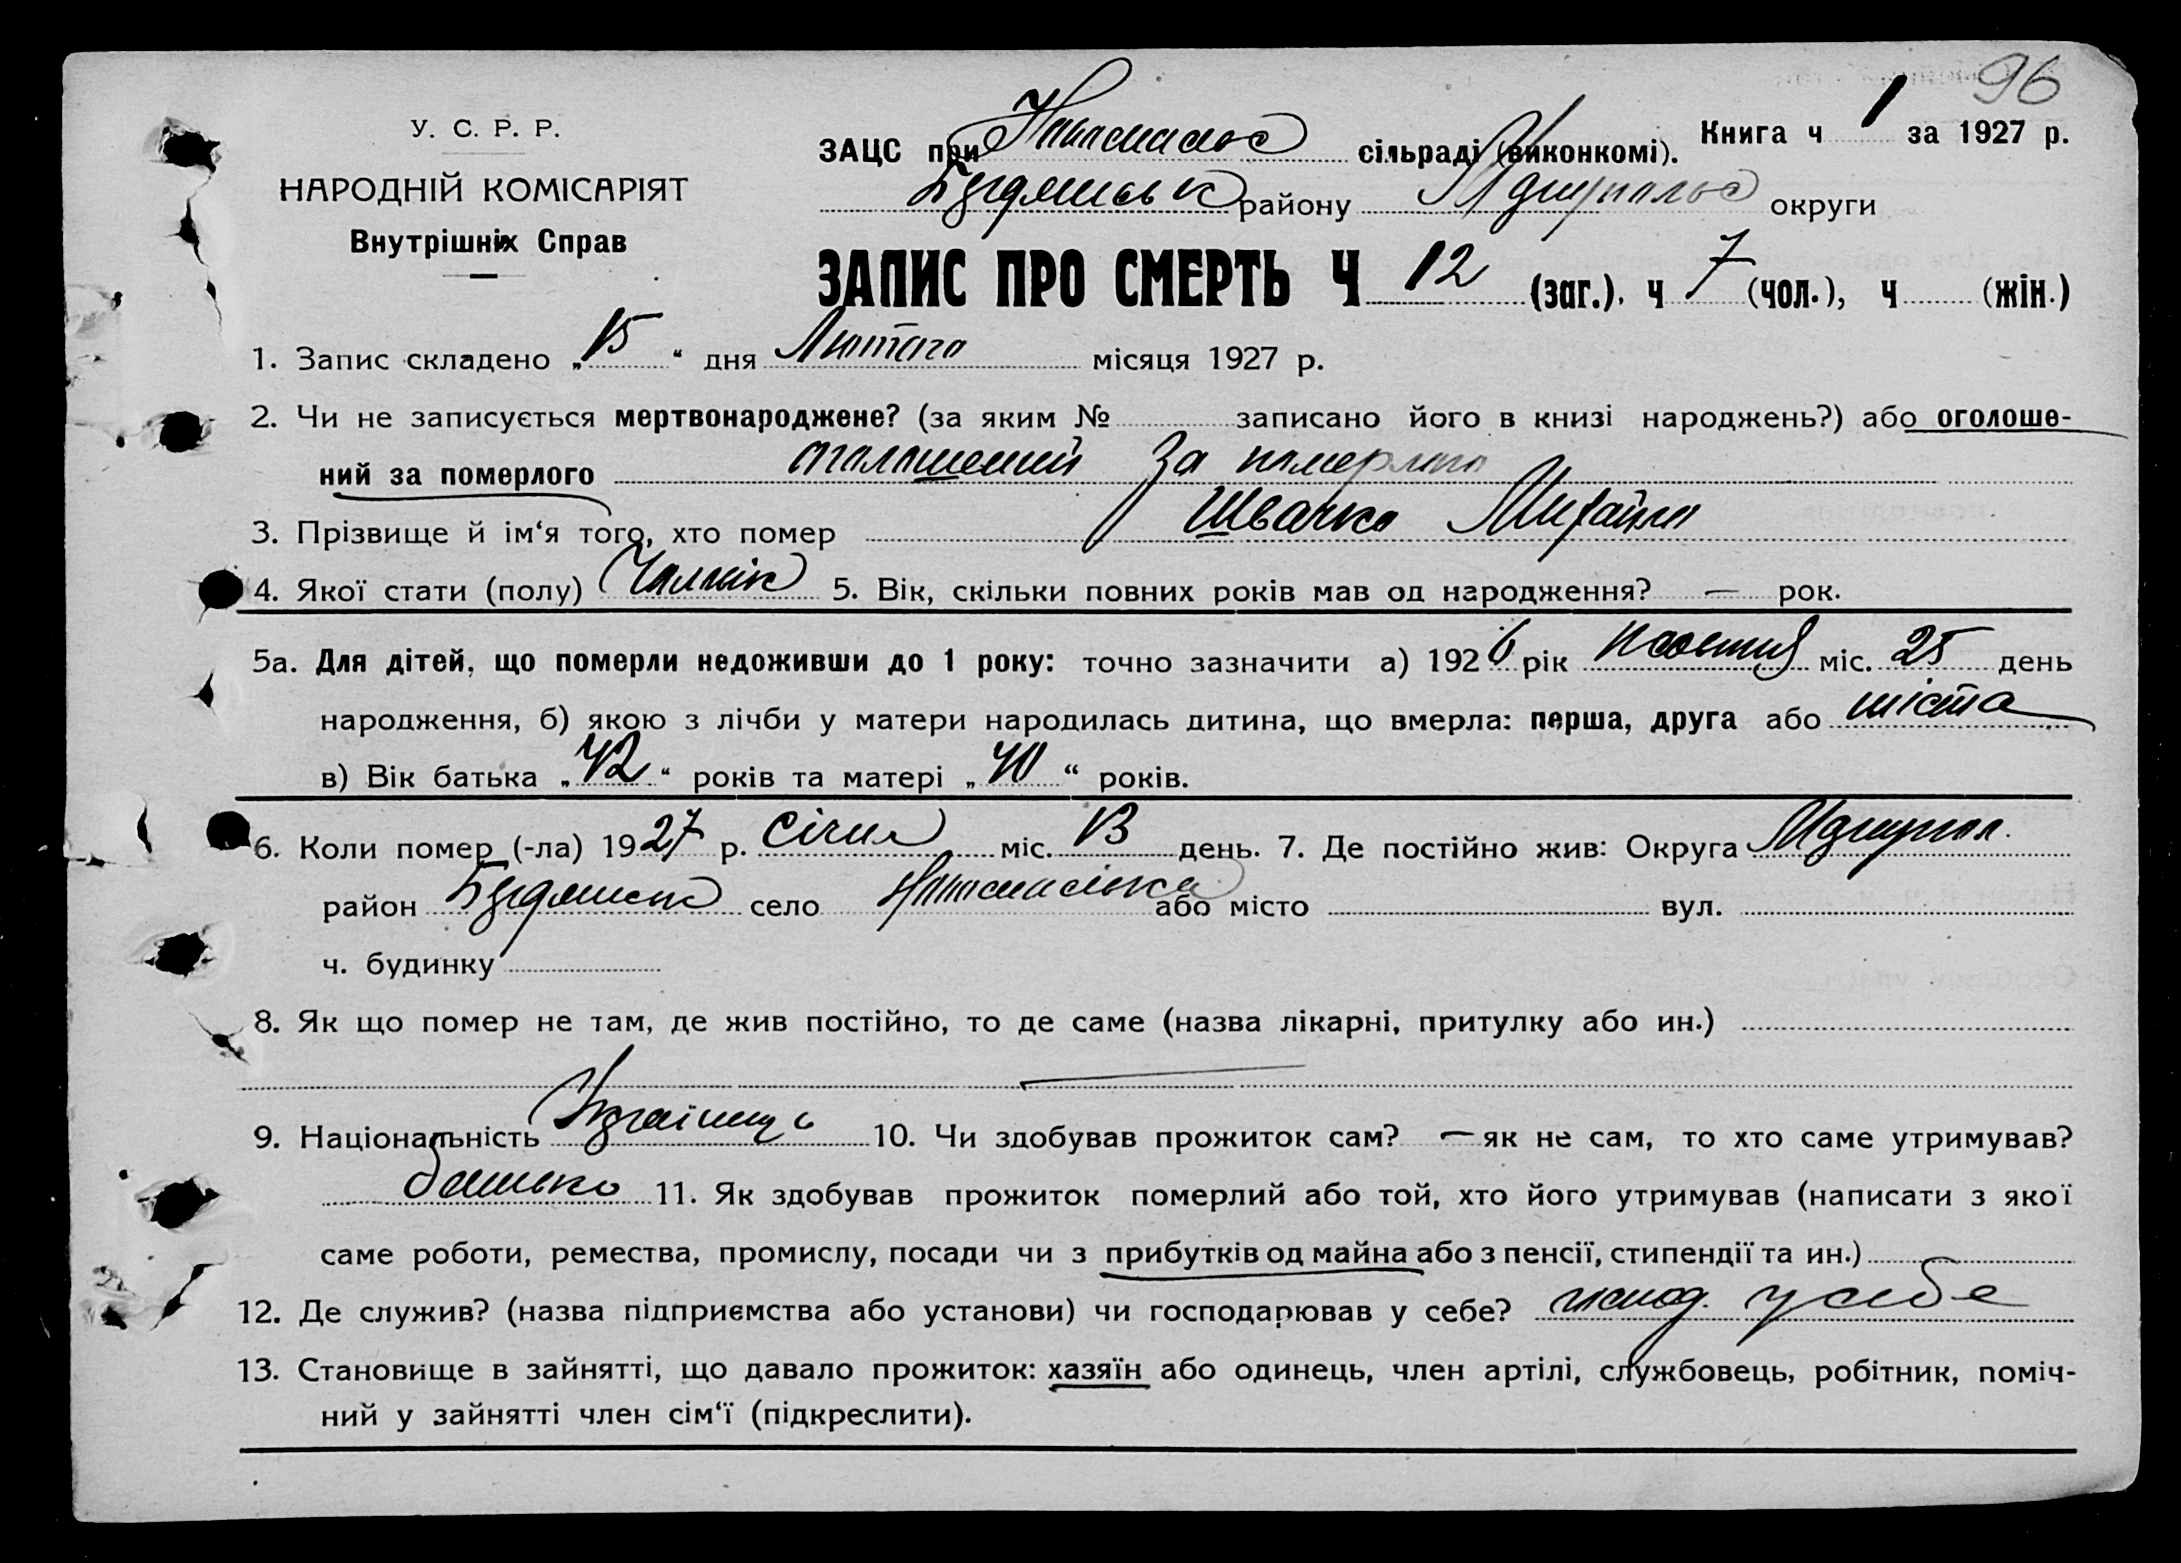 96
У. С. Р. Р.
НАРОДНІЙ КОМІСАРІЯТ
Внутрішніх Справ
ЗАЦС при сільраді (виконкомі). Книга ч 1 за 1927 р.
району округи
ЗАПИС ПРО СМЕРТЬ Ч 12 (заг.), ч 7 (чол.), ч (жін.)
1. Запис складено „15“ дня Лютого місяця 1927 р.
2. Чи не записується мертвонароджене? (за яким № записано його в книзі народжень?) або оголоше-
ний за померлого оголошений за померлого
3. Прізвище й ім‘я того, хто помер Швачко Михайло
4. Якої стати (полу) Чоловік 5. Вік, скільки повних років мав од народження? — рок.
5а. Для дітей, що померли недоживши до 1 року: точно зазначити а) 1926 рік жовтня міс. 25 день
народження, б) якою з лічби у матери народилась дитина, що вмерла: перша, друга або шіста
в) Вік батька „42“ років та матері „40“ років.
6. Коли помер (-ла) 1927 р. Січня міс. 13 день. 7. Де постійно жив: Округа Маріупол.
район село або місто вул.
ч. будинку
8. Як що помер не там, де жив постійно, то де саме (назва лікарні, притулку або ин.)
—
9. Національність Українець 10. Чи здобував прожиток сам? — як не сам, то хто саме утримував?
батько 11. Як здобував прожиток померлий або той, хто його утримував (написати з якої
саме роботи, ремества, промислу, посади чи з прибутків од майна або з пенсії, стипендії та ин.)
12. Де служив? (назва підприємства або установи) чи господарював у себе? господ. у себе
13. Становище в зайнятті, що давало прожиток: хазяїн або одинець, член артілі, службовець, робітник, поміч-
ний у зайнятті член сім‘ї (підкреслити).